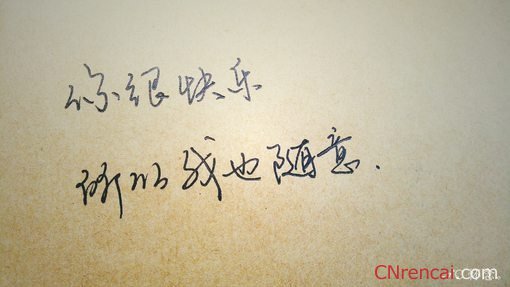 你很快乐
所以我也随意.
CNrencai.com